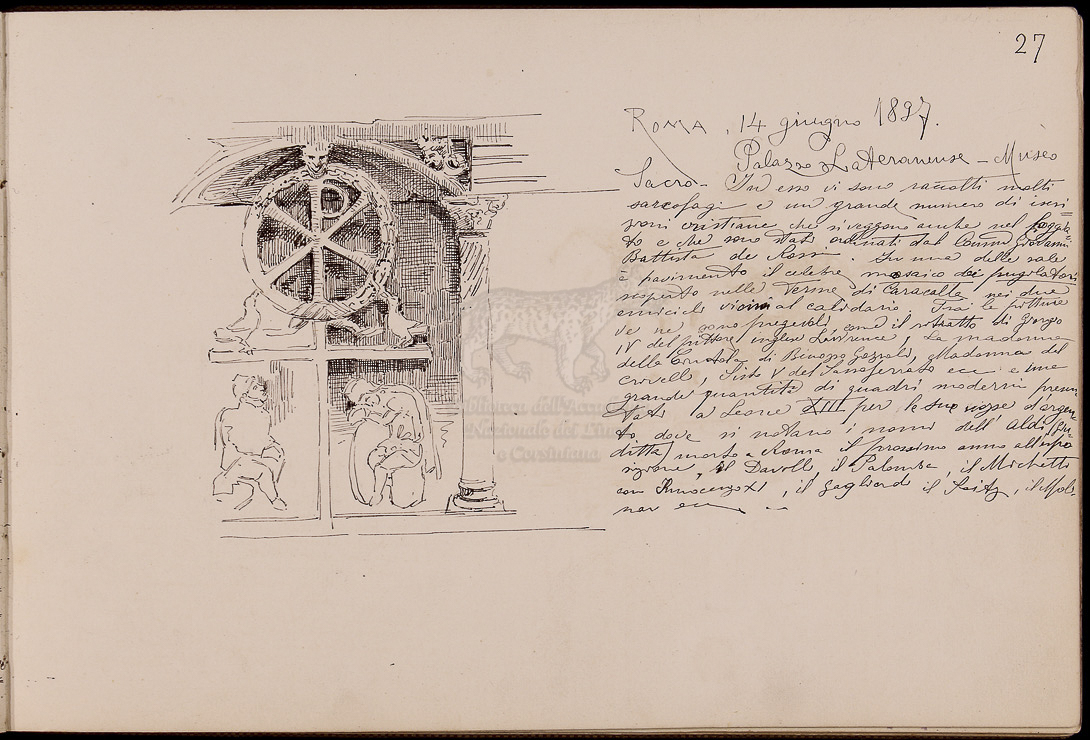 27
ROMA, 14 giugno 1897.
Palazzo Lateranense - Museo
Sacro - In esso vi sono raccolti molti
sarcofagi e un grande numero di iscri
zioni cristiane che si veggono anche nel loggia
to e che sono stati ordinati dal Comm Giovanni
Battista de Rossi. In una delle sale
è pavimento il celebre mosaico dei pugilatori
scoperto nelle Terme di Caracalla nei due
emicicli vicini al calidario. Fra le pitture
ve ne sono pregevoli, come il ritratto di Giorgio
IV del pittore inglese Lawrence, La madonna
della Cintola di Binozzo Gozzoli, Madonna del
Crivelli, Sisto V del Sassoferrato ecc e una
grande quantità di quadri moderni presen
tati a Leone XIII per le sue nozze d'argen
to dove si notano i nomi dell'
morto a Roma il prossimo anno all'espo
sizione, il il Palomba, il Michetti
con Innocenzo XI, il Gagliardi il Seitz, il Mol
nar ecc
Biblioteca dell'Accademia
Nazionale dei Lincei
e Corsiniana